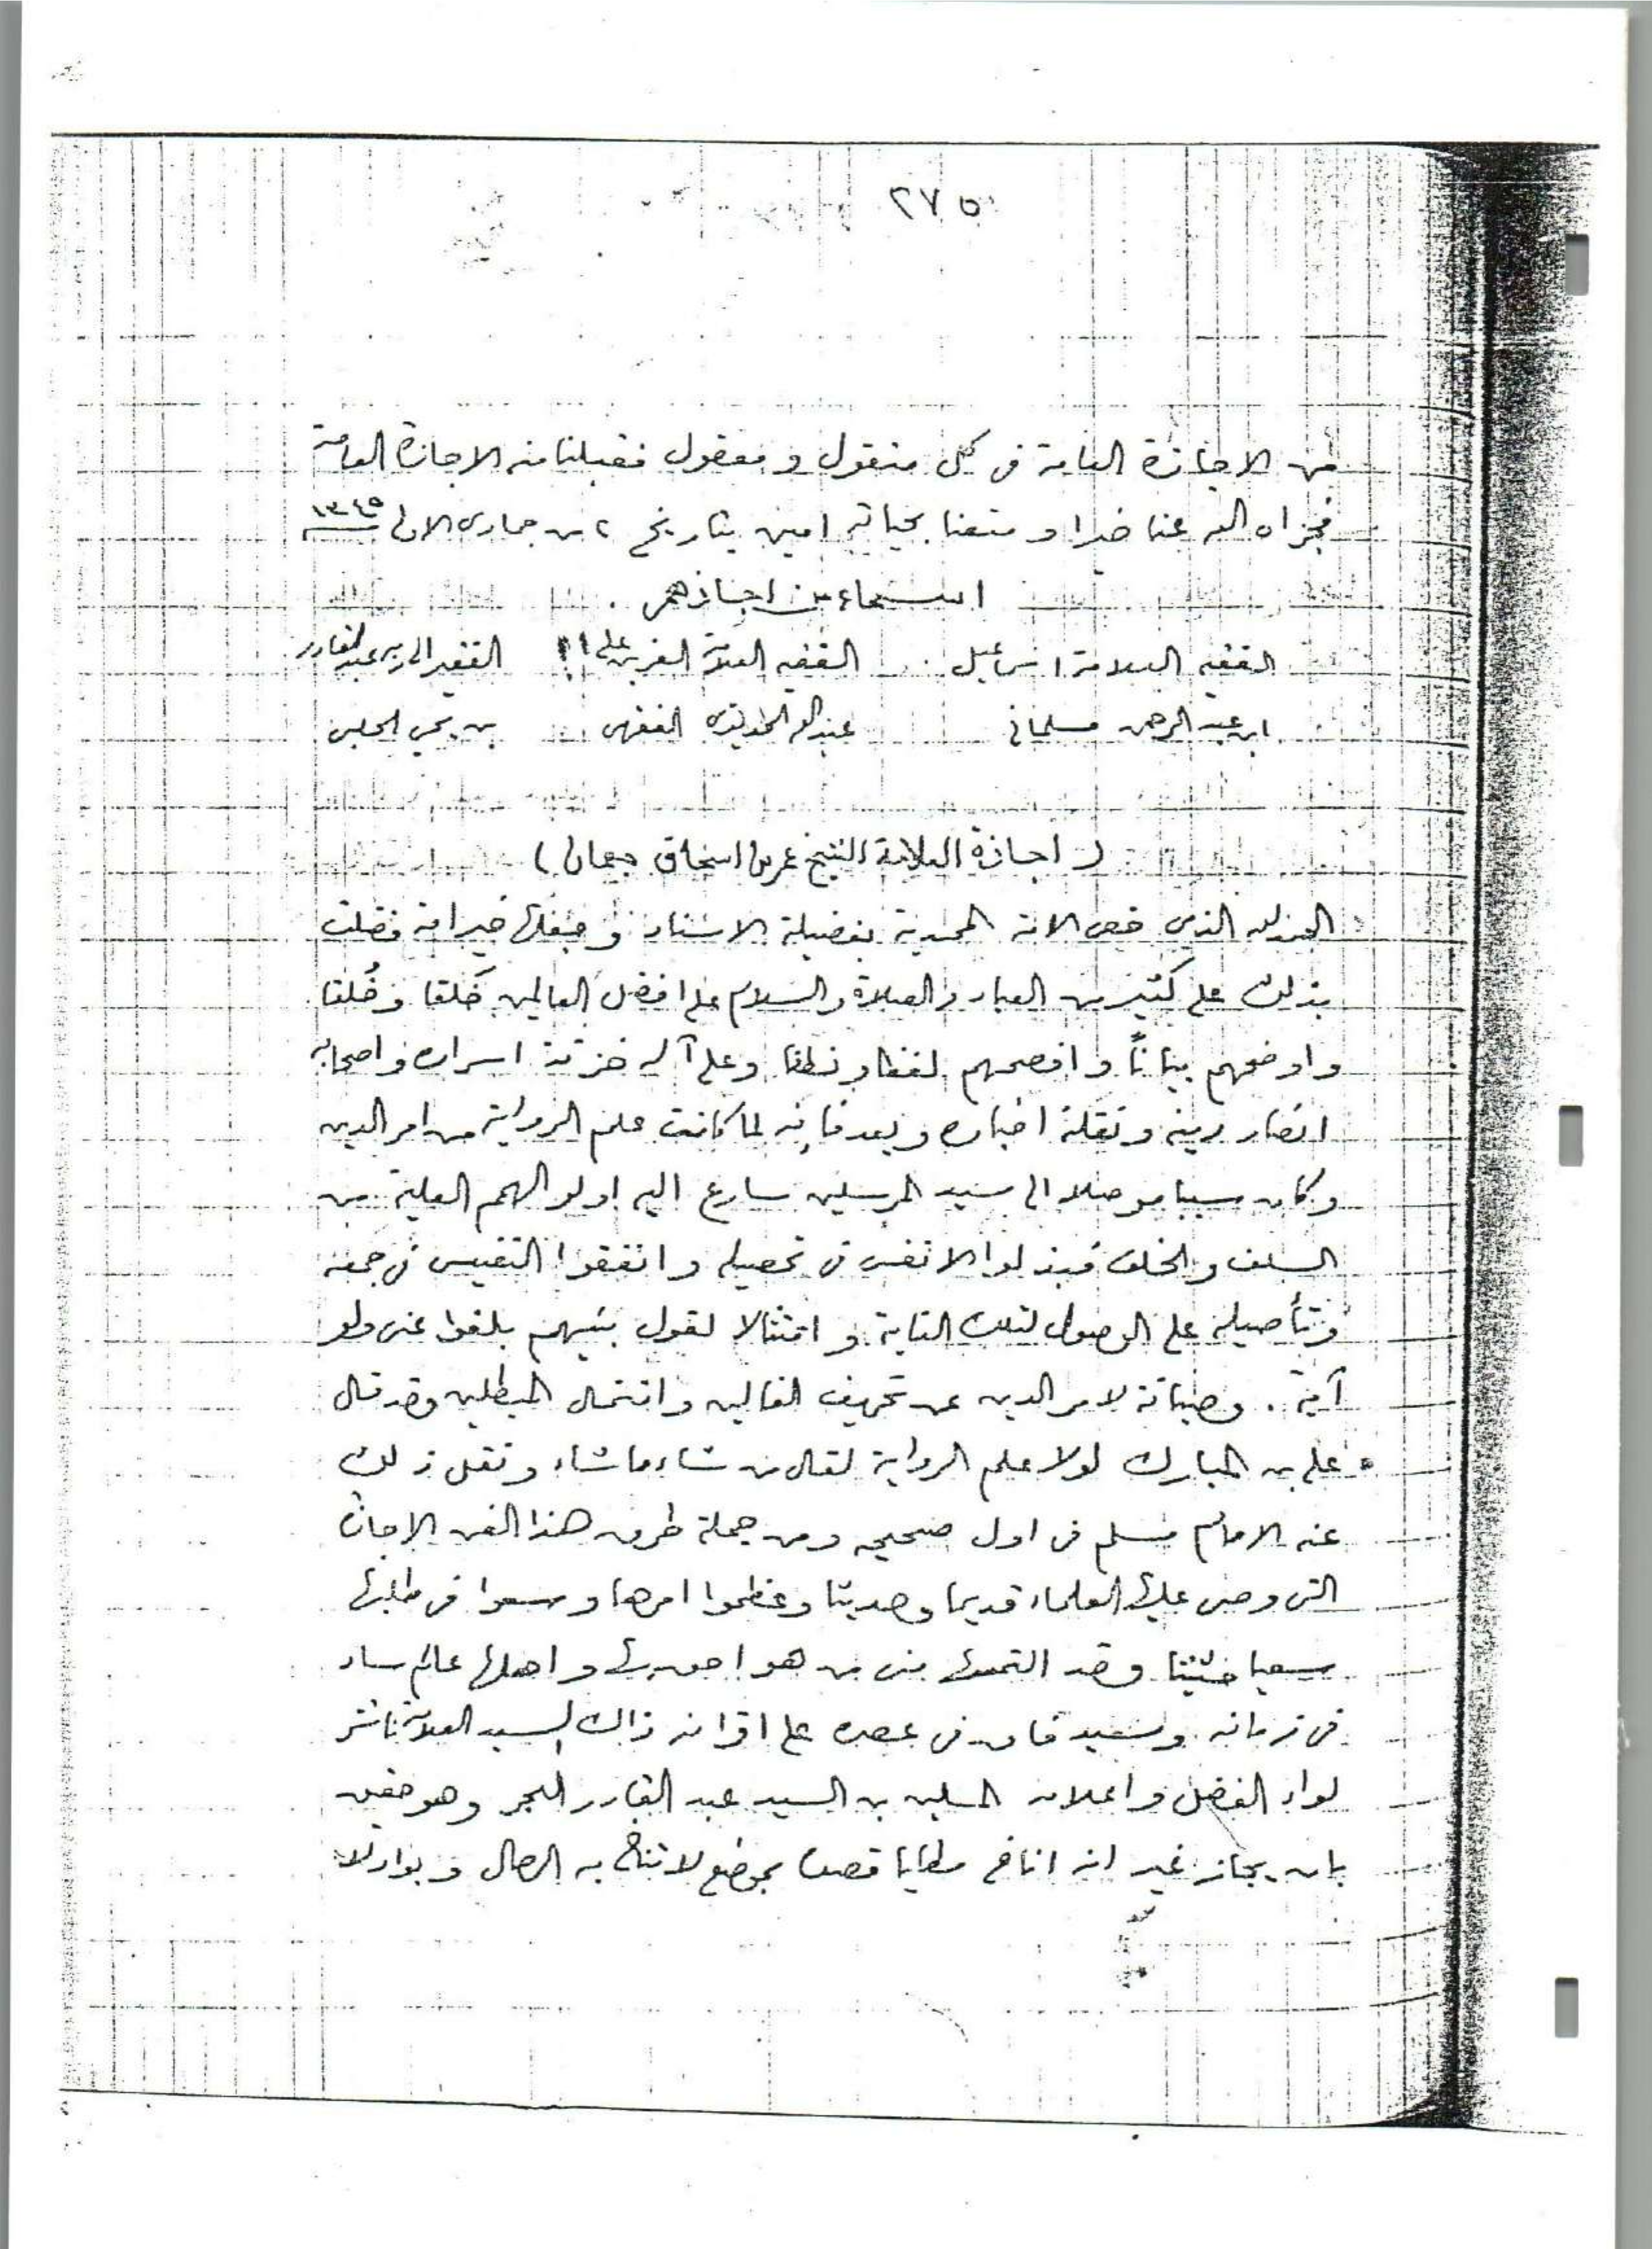 ٢٧٥
من الاجازة العامة فى كل منقول و معقول فقبلنا منه الاجازة العامة
فجزاه الله عنا خيرا و متعنا بحياته امين بتاريخ ٢ من جمادى الاولى ١٣٤٥
اسماء من اجازهم
الفقيه العلامة اسماعيل الفقيه العلامة على الفقير الى ربه عبد القادر
ابن عبد الرحمن مسلمانى عبد الله بن يحي الحلبى
( اجازة العلامة الشيخ عمر بن اسحاق جمعان )
الحمد لله الذى خص الامة المحمدية بفضيلة الاسناد وجعلها خير امة فضلت
بذلك على كثير من العباد والصلاة والسلام على افضل العالمين خَلقا وخُلقا
واوضحهم بياناً وافصحهم لفظا ونطقا وعلى آله خزنة اسراره واصحابه
انصار دينه ونقلة اخباره وبعد فإنه لما كانت علم الرواية من امر الدين
وكان سببا موصلا الى سيد المرسلين سارع اليه اولو الهمم العلية من
السلف والخلف فبذلوا الانفس فى تحصيله وانفقوا النفيس فى جمعه
وتأصيله على الوصول لتلك الغاية و امتثالا لقول نبيهم بلغوا عنى ولو
آية . وصيانة لامر الدين عن تحريف الغالين وانتحال المبطلين وقد قال
على بن المبارك لولا علم الرواية لقال من شاء ما شاء ونقل ذلك
عنه الامام مسلم فى اول صحيحه ومن جملة طرق هذا الفن الاجازة
التى وصى عليها العلماء قديما وحديثا وعظموا امرها وسعوا فى طلبها
سعيا حثيثا وقد التمسها منى من هو احق بها واهلها عالم ساد
فى زمانه وسعيد فاق فى عصره على اقرانه ذاك السيد العلامة ناشر
لواء الفضل واعلانه المسلين بن السيد عبد القادر البحر وهو حقيق
بان يجاز غير انه اناخ مطايا قصده بموضع لا تناخ به الرحال و بواد لا